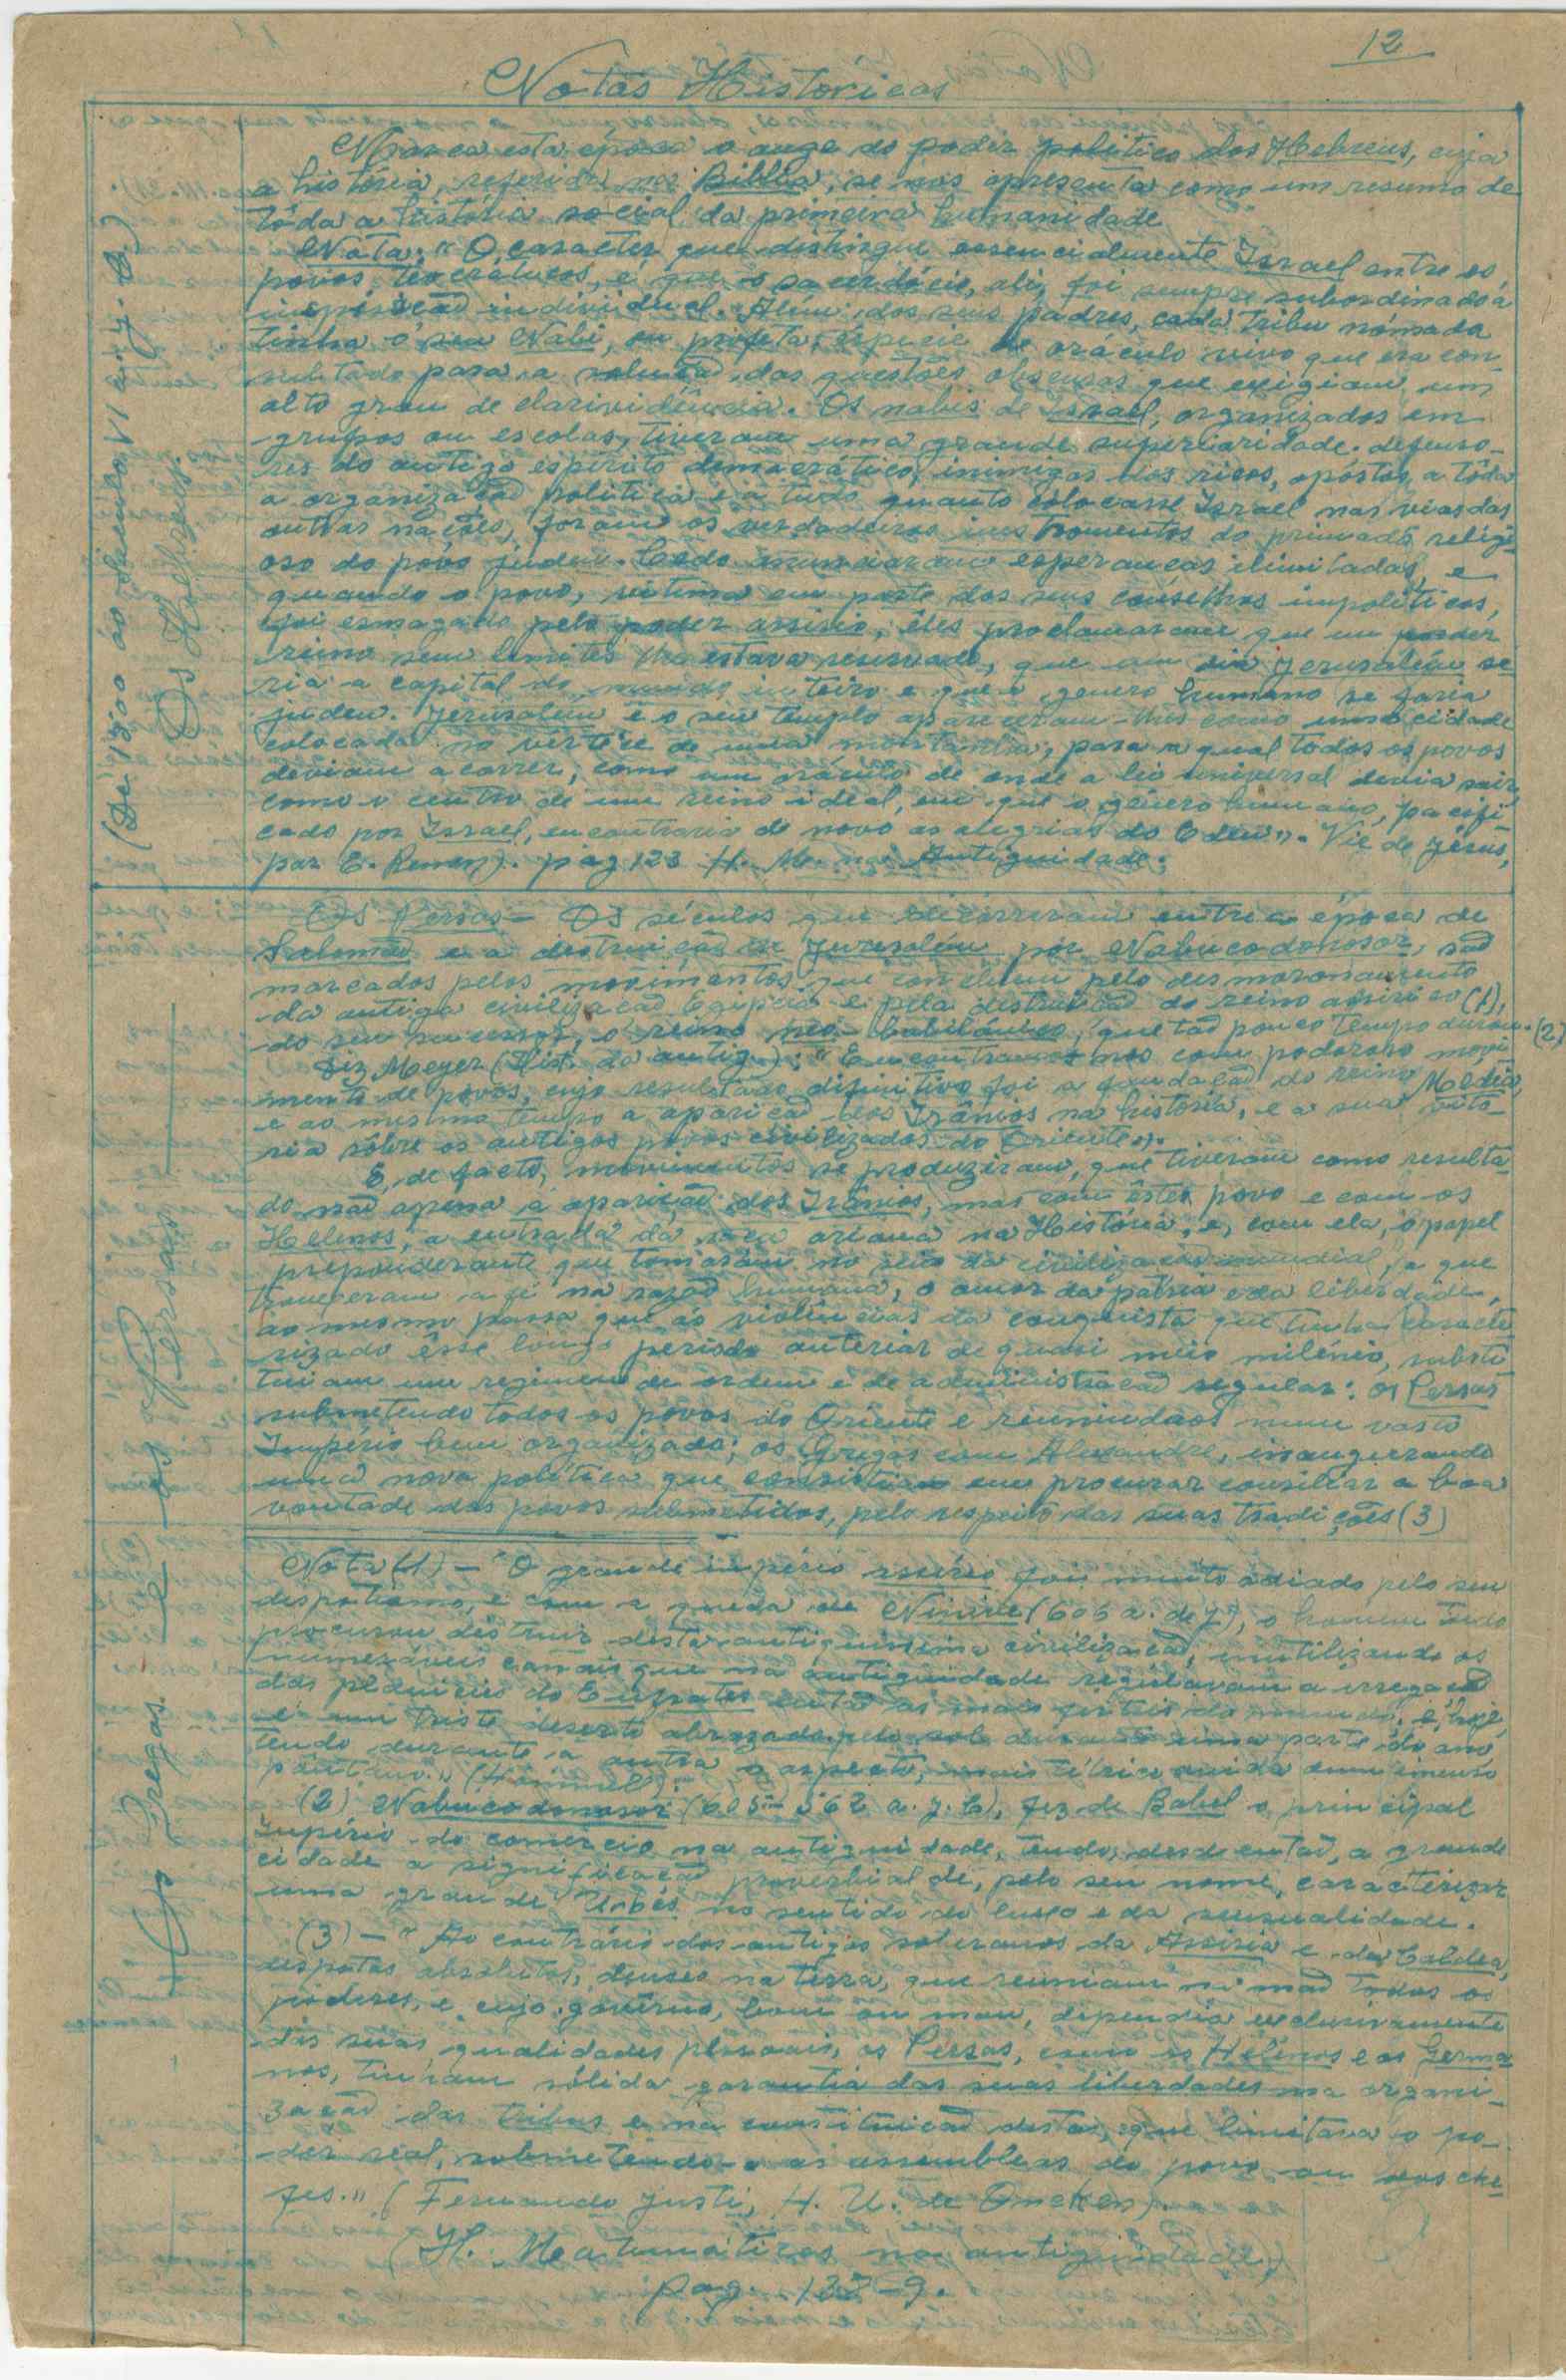 12
Notas Históricas
(De 1300 ao século VI a. J. C.)
Os Hebreus.
Marca esta época o auge do poder politico dos Hebreus, cuja
a história, referida nos Biblia, se nos apresenta como um resumo de
tôda a história social da primeira humanidade
Nota: "O caracter que distingue essencialmente Israel entre os
povos teocráticos, é que o sacerdócio, ali, foi sempre subordinado á
inspiração individual. Além dos seus padres, cada tribu nómada
tinha o seu Nabi, ou profeta, espécie de oráculo vivo que era con
sultado para a solução das questões obscuras que exigiam um
alto grau de clarividência. Os nabis de Israel, organizados em
grupos ou escolas, tiveram uma grande superioridade. defenso-
res do antigo espírito democrático, inimigos dos ricos, opóstos a tôda
a organização politica e a tudo quanto colocasse Israel nas vias das
outras nações, foram os verdadeiros instromentos do primado religi
oso do povo judeu. Cedo anunciaram esperanças ilimitadas, e
quando o povo, vitima em parte dos seus conselhos impoliticos,
foi esmagado pelo poder assirio, êles proclamaram que um
reino sem limites lhe estava reservado, que um dia Jerusalém se
ria a capital do mundo inteiro e que o genero humano se faria
judeu. Jerusalém e o seu templo apareceram-lhes como uma cidade
colocada no vértice de uma montanha, para a qual todos os povos
deviam acorrer, como um oráculo de onde a lei universal devia sair,
como o centro de um reino ideal, em que o género humano, pacifi
cado por Israel, encontraria de novo as alegrias do Eden". Vie de Jésus,
por E. Renan). pag 123 H. M. na Antiguidade.
Os Gregos e os Persas
Os Persas - Os séculos que decorreram entre a época de
Salomão e a destruição de Jerusalém por Nabucodonosor, são
marcados pelos movimentos que concluem pelo desmoronamento
da antiga civilização Egipcia e pela destruição do reino assirico (1),
do seu sucessor, o reino neo-babilónico, que tão pouco tempo durou. (2)
Diz Meyer (Hist. da antig.): "Encontramos-nos com poderoso movi
mento de povos, cujo resultado difinitivo foi a fundação do reino Média,
e ao mesmo tempo a aparição dos Irânios na história, e a sua vitó-
ria sôbre os antigos povos civilizados do Oriente".
E, de facto, movimentos se produziram, que tiveram como resulta
do não apena a aparição dos Irânios, mas com êstes povo e com os
Helenos, a entrada da raça ariana na História, e, com ela, o papel
preponderante que tomaram no seio da civilização mundial, a que
trouxeram a fé na razão humana, o amor da pátria e da liberdade,
ao mesmo passo que ás violências da conquista que tinha caracte
rizado êsse longo periodo anterior de quasi meio milénio, substi
tuiam um regimen de ordem e de administração regular: os Persas
submetendo todos os povos do Oriente e reunindo-os num vasto
Império bem organizado; os Gregos com Alexandre, inaugurando
uma nova política que consistia em procurar conciliar a boa
vontade dos povos submetidos, pelo respeito das suas tradições (3)
Nota (1) - "O grande império assirio foi muito odiado pelo seu
despotismo, e com a queda de Ninive (606 a. de J.), o homem tudo
procurou destruir desta antiquissima civilização, inutilizando os
numeráveis canais que na antiguidade regulavam a irregação
das planicies do Eufrates então as mais férteis do mundo. é, hoje,
um triste deserto abrazado pelo sol durante uma parte do ano,
tendo durante a outra o aspecto, mais tétrico ainda dum imenso
pântano." (Himmel).
(2) Nabucodonosor (605 - 562 a. J. C), fez de Babel o principal
Império do comércio na antiguidade, tendo, desde então, a grande
cidade a significação proverbial de, pelo seu nome, caracterizar
uma grande Urbes no sentido do luxo e da sensualidade.
(3) - "Ao contrário dos antigos soberanos da Assiria e da Caldea,
despotas absolutos, deuses na terra, que reuniam na mão todos os
poderes, e cujo govêrno, bom ou mau, dependia exclusivamente
das suas qualidades pessoais, os Persas, como os Helenos e os Germa
nos, tinham sólida garantia das suas liberdades na organi-
zação das tribus e na constituição destas, que limitava o po-
der real, submetendo-o ás assembleas do povo ou dos che
fes." (Fernando Justi, H. U. de Oncken).
(H. Matemáticas na antiguidade)
pag. 138-9.